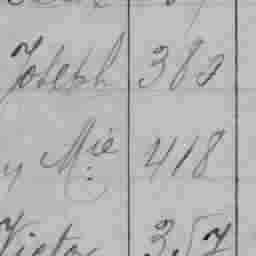 Joseph 382
y Mie 418
Victor 357